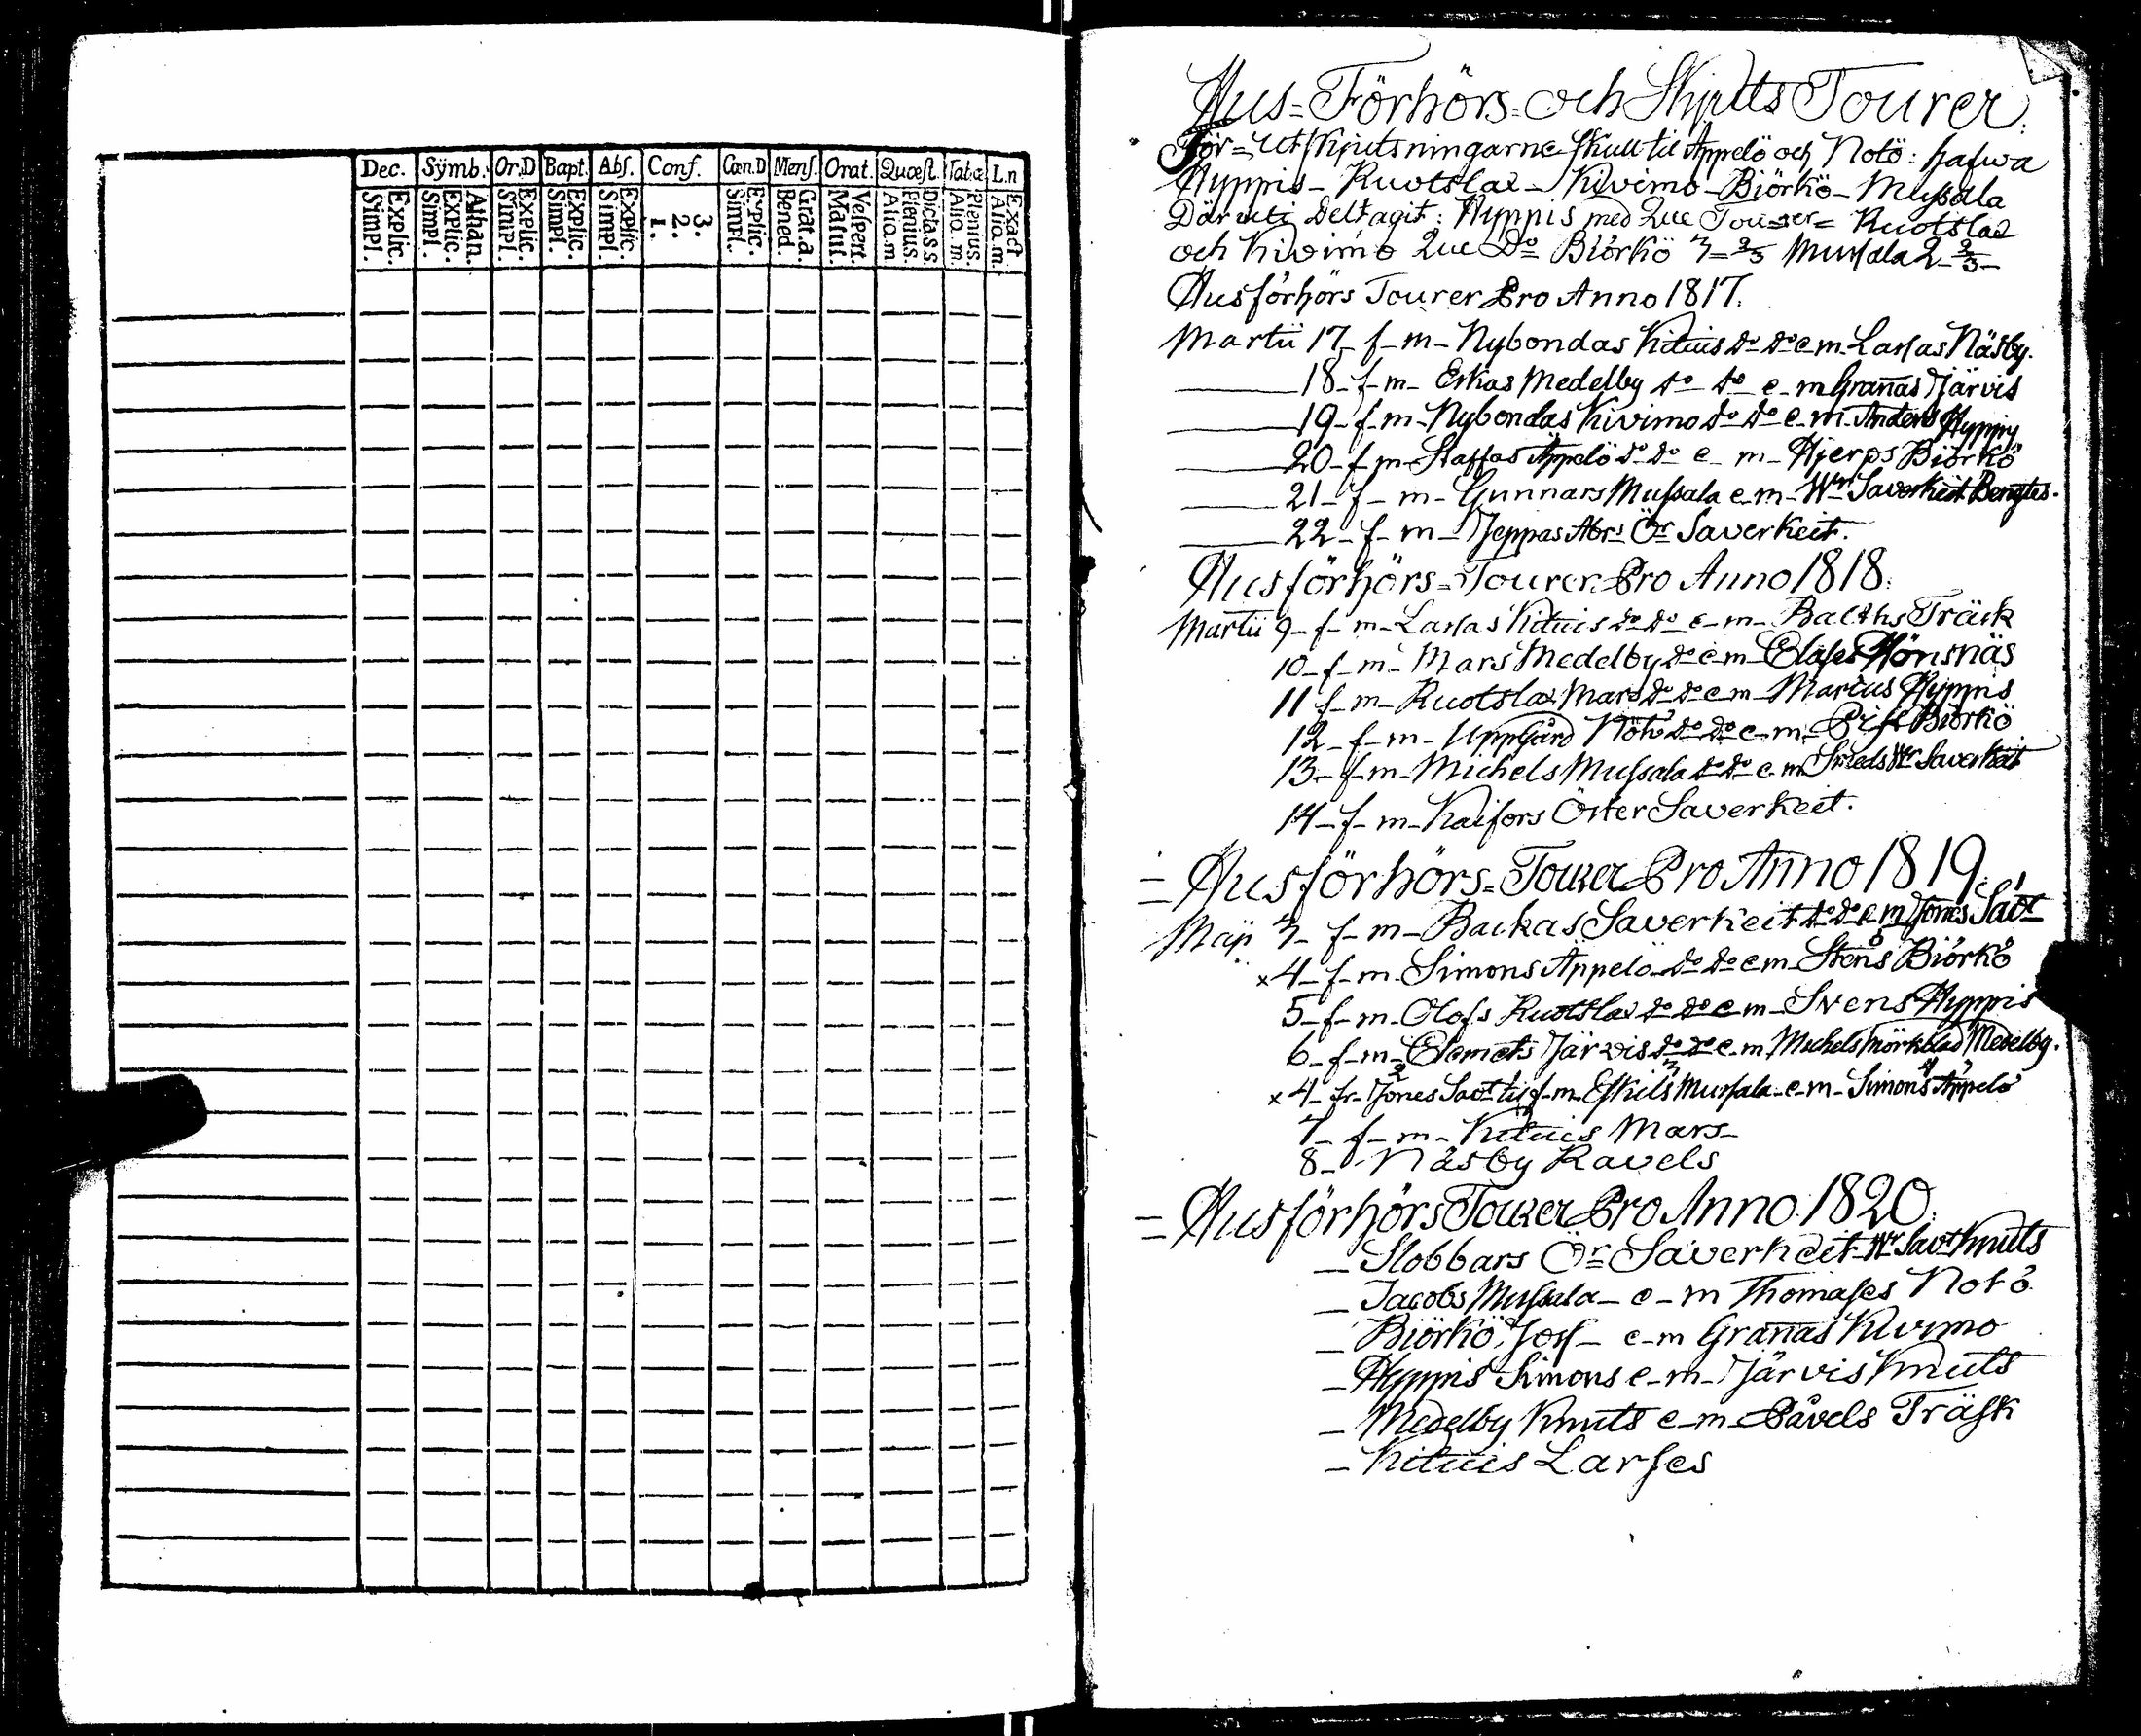 Dec. Sÿmb. Or.D Bapt. Abſ. Conf. Cœn.D Menſ. Orat. Quæſt. Tab.æ L.n
Explic. Simpl.
Athan. Explic. Simpl.
Explic. Simpl.
Explic. Simpl.
Explic. Simpl.
3. 2. 1.
Explic. Simpl.
Grat.a. Bened.
Veſpert. Matut.
Dictas s. Plenius. Alio.m
Plenius. Alio.m
Exact Alio.m
Hus-Förhörs-och Skjutts Tourer.
För-utskjutsningarne skull til Appelö och Notö: hafwa
Hyppis-Ruotslax-Kivimo-Biörkö-Mussala
Där uti Deltagit: Hyppis med 2ue Tourer= Ruotslax
och Kivimo 2ue Do Biörkö 3-2/3 Mussala 2-2/3-
Husförhörs Tourer Pro Anno 1817.
Martii 17-f-m-Nybondas Kituis Do Do e.m. Lassas Näsby.
18-f-m-Erkas Medelby Do Do e-m Granas Järvis
19-f-m-Nybondas Kivimo Do Do e-m-Anders Hyppis
20-f-m-Staffas Äppelö Do Do e-m-Hjerps Biörkö
21-f-m-Gunnars Mussala e-m-Wr Saverkeit Bengtes.
22-f-m-Jeppas Ör Saverkeit.
Husförhörs-Tourer Pro Anno 1818.
Martii 9-f-m-Lassas Kituis Do Do e-m- Träsk
10-f-m-Mars Medelby Do e-m Hönsnäs
11 f-m-Ruotslax Mars Do Do e-m-Marcus Hyppis
12-f-m-Uppgård Nötö Do Do e-m- Biörkö
13-f-m-Michels Mussala Do Do e-m Wr Saverkeit
14-f-m-Kaifors Öster Saverkeit.
Husförhörs-Tourer Pro Anno 1819.
Maji 3-f-m-Backas Saverkeit Do Do e-m Jones Savt
x4-f-m-Simons Äppelö Do Do e-m-Stens Biörkö
5-f-m-Olofs Ruotslax Do Do e-m-Svens Hyppis
6-f-m-Clemets Järvis Do Do e-m Michels Mörkblad Medelby.
x4-fr-Jones Savt til f-m-Eskils Mussala-e-m-Simons Äppelö
7-f-m-Kituis Mars-
8-Näsby Ravels
Husförhörs Tourer Pro Anno 1820.
Slobbars Ör Saverkeit-Wr Savt Knuts
Jacobs Mussala-e-m Thomases Notö
Biörkö e-m Granas Kivimo
Hyppis Simons e-m-Järvis Knuts
Medelby Knuts e-m-Påvels Träsk
Kituis Larses